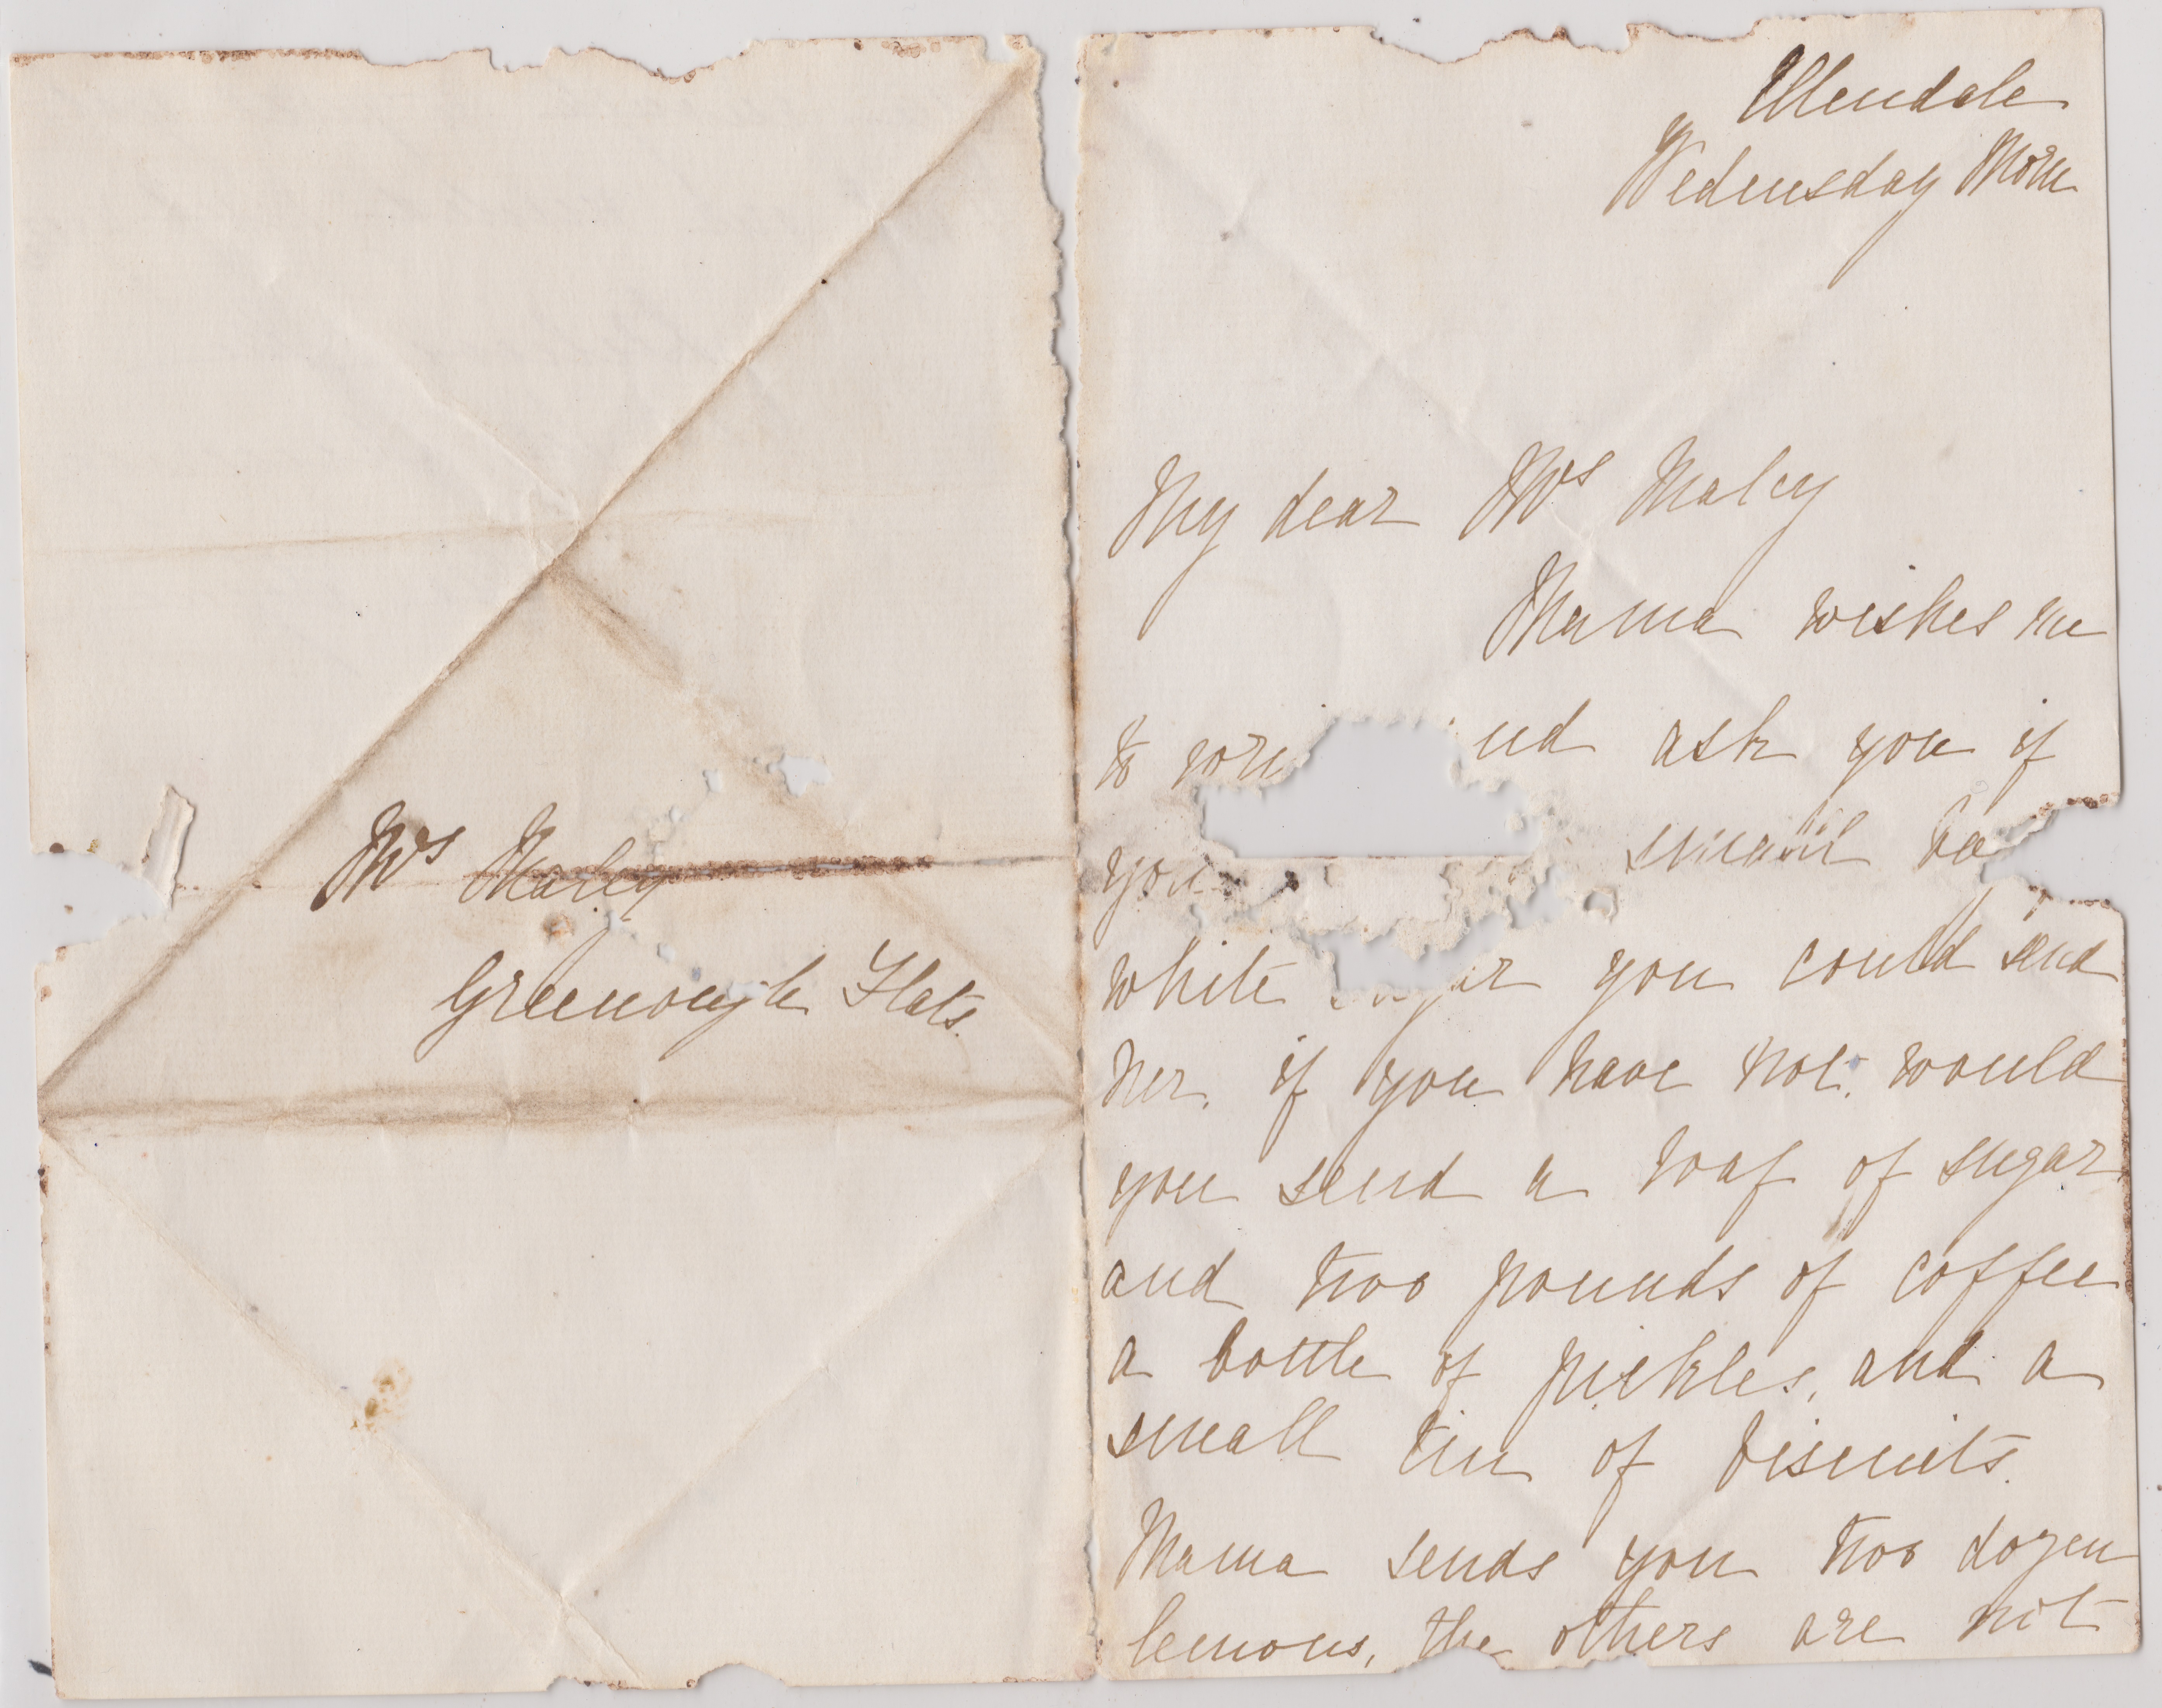 Mrs Maley
Greenough Flats.
Ellendale
Wednesday Morn
My dear Mrs Maley
Mama wishes me
to ask you if
you small
white you could send
her. if you have not. would
you send a loaf of sugar
and two pounds of coffee
a bottle of pickles, and a
small tin of biscuits.
Mama sends you two dozen
lemons, the others are not